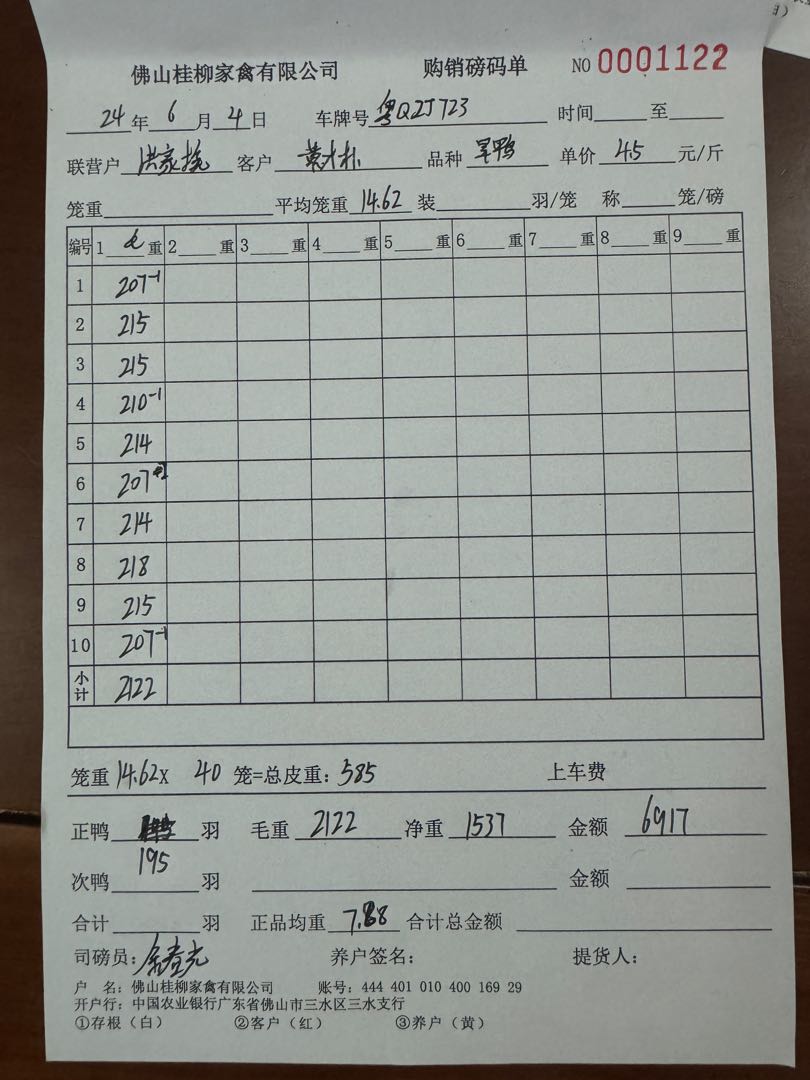 佛山桂柳家禽有限公司 购销磅码单 NO 0001122
24年6月4日 车牌号粤Q2J723 时间 至
联营户 客户 品种 旱鸭 单价 4.5 元/斤
笼重 平均笼重 14.62 装 羽/笼 称 笼/磅
编号 1 重 2 重 3 重 4 重 5 重 6 重 7 重 8 重 9 重
1 207-1
2 215
3 215
4 210-1
5 214
6 207
7 214
8 218
9 215
10 207-1
小计 2122
笼重14.62X 40 笼=总皮重:585 上车费
正鸭 羽 毛重 2122 净重 1537 金额 6917
195
次鸭 羽 金额
合计 羽 正品均重 7.88 合计总金额
司磅员: 养户签名: 提货人:
户 名: 佛山桂柳家禽有限公司 账号: 444 401 010 400 169 29
开户行: 中国农业银行广东省佛山市三水区三水支行
①存根（白） ②客户（红） ③养户（黄）